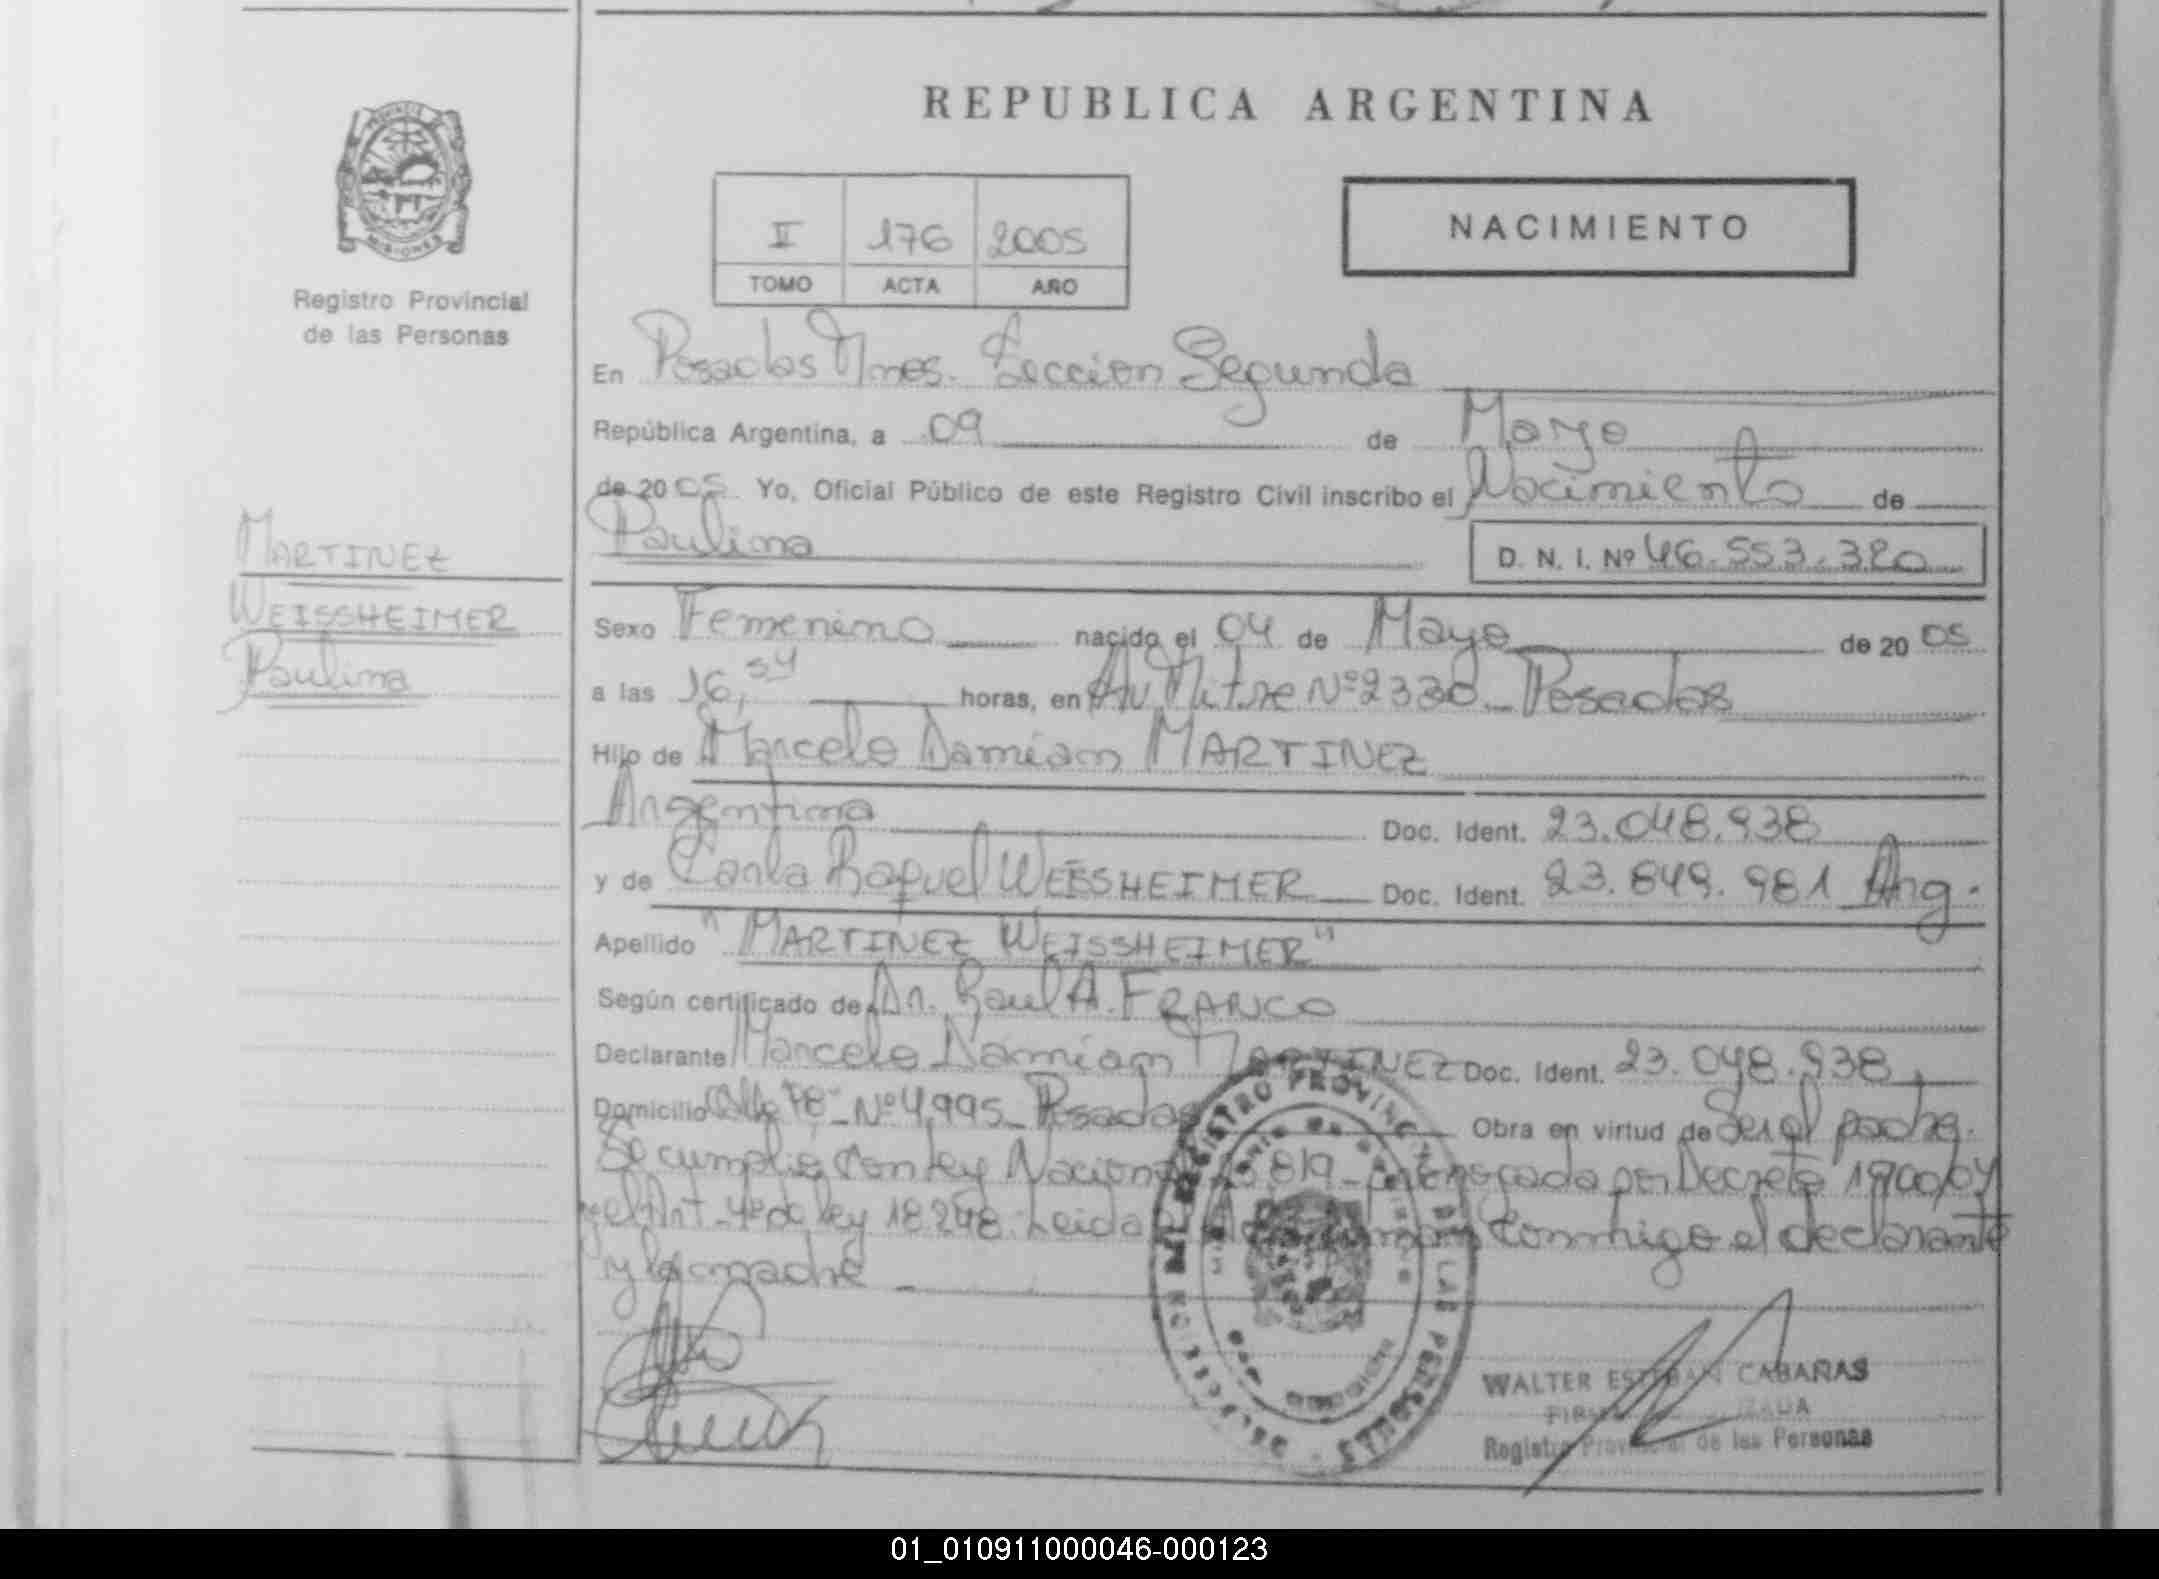 REPUBLICA ARGENTINA
PROVINCIA DE
MISIONES
Registro Provincial
de las Personas
II 176 2005
TOMO ACTA AÑO
NACIMIENTO
En Posadas Mnes. Seccion Segunda
República Argentina, a 09 de Mayo
de 2005 Yo, Oficial Público de este Registro Civil inscribo el Nacimiento de
Paulina
D. N. I. Nº 46.553.320
MARTINEZ
WEISSHEIMER
Paulina
Sexo Femenino nacido el 04 de Mayo de 2005
a las 16,54 horas, en Av Mitre Nº 2330 Posadas
Hijo de Marcelo Damian MARTINEZ
Argentina Doc. Ident. 23.048.938
y de Carla Raquel WEISSHEIMER Doc. Ident. 23.849.981 Arg.
Apellido "MARTINEZ WEISSHEIMER"
Según certificado de Dr. Raul A. FRANCO
Declarante Marcelo Damian MARTINEZ Doc. Ident. 23.048.938
Domicilio Calle 78 - Nº 4.995 - Posadas Obra en virtud de Ser el padre.
Se cumplió con ley Nacional prorrogada por Decreto 1900/04
y el Art. 4º de ley 18.248. Leida conmigo el declarante
y la madre
REGISTRO PROVINCIAL DE LAS PERSONAS
WALTER ESTEBAN CABAÑAS
Registro Provincial de las Personas
01_010911000046-000123